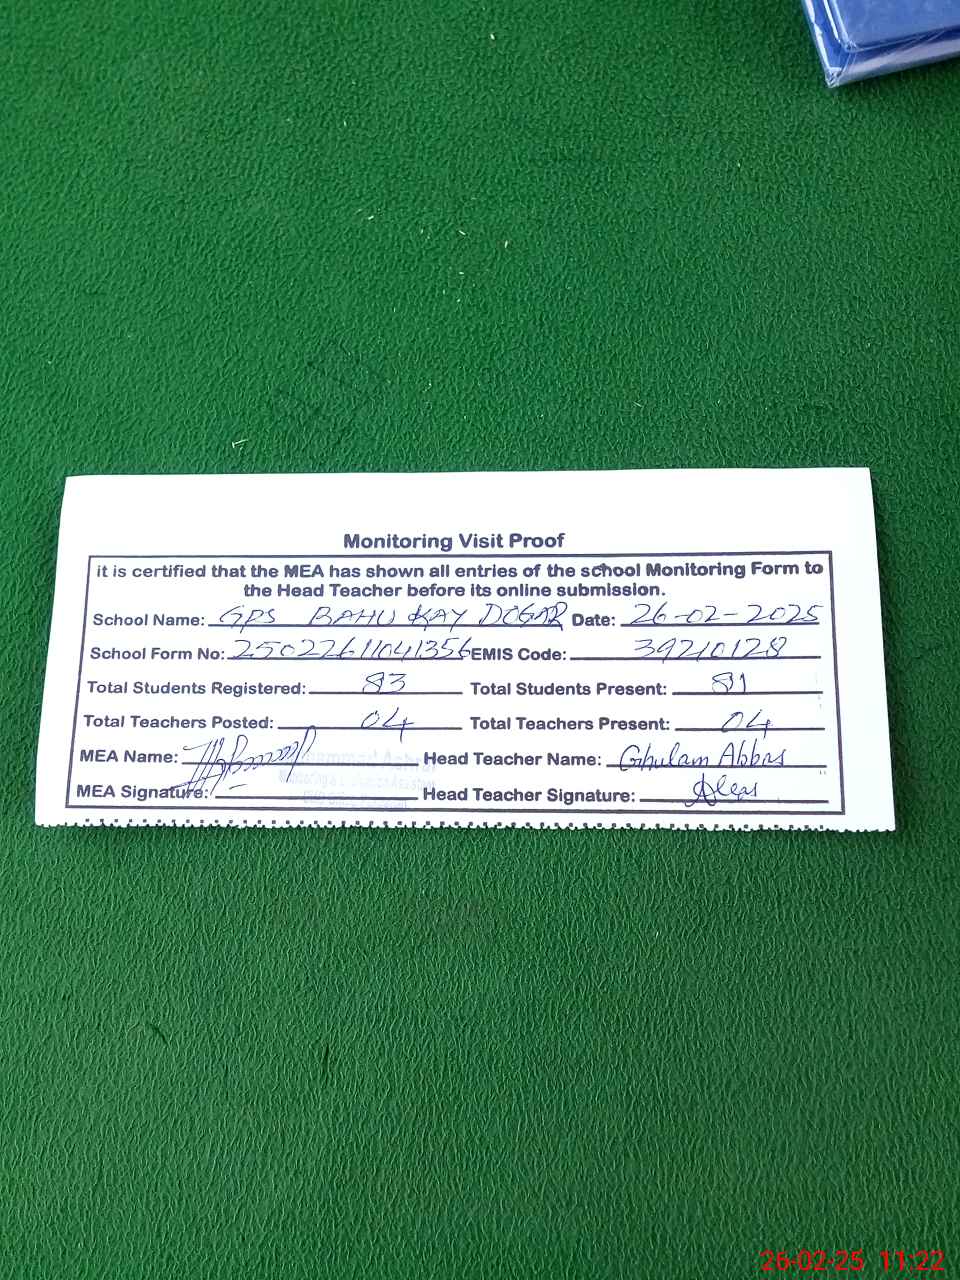 Monitoring Visit Proof
it is certified that the MEA has shown all entries of the school Monitoring Form to
the Head Teacher before its online submission.
School Name: GPS BAHU KAY DOGAR Date: 26-02-2025
School Form No: 25022611041356 EMIS Code: 39210128
Total Students Registered: 83 Total Students Present: 81
Total Teachers Posted: 04 Total Teachers Present: 04
MEA Name: Head Teacher Name: Ghulam Abbas
MEA Signature: Head Teacher Signature:
26-02-25 11:22